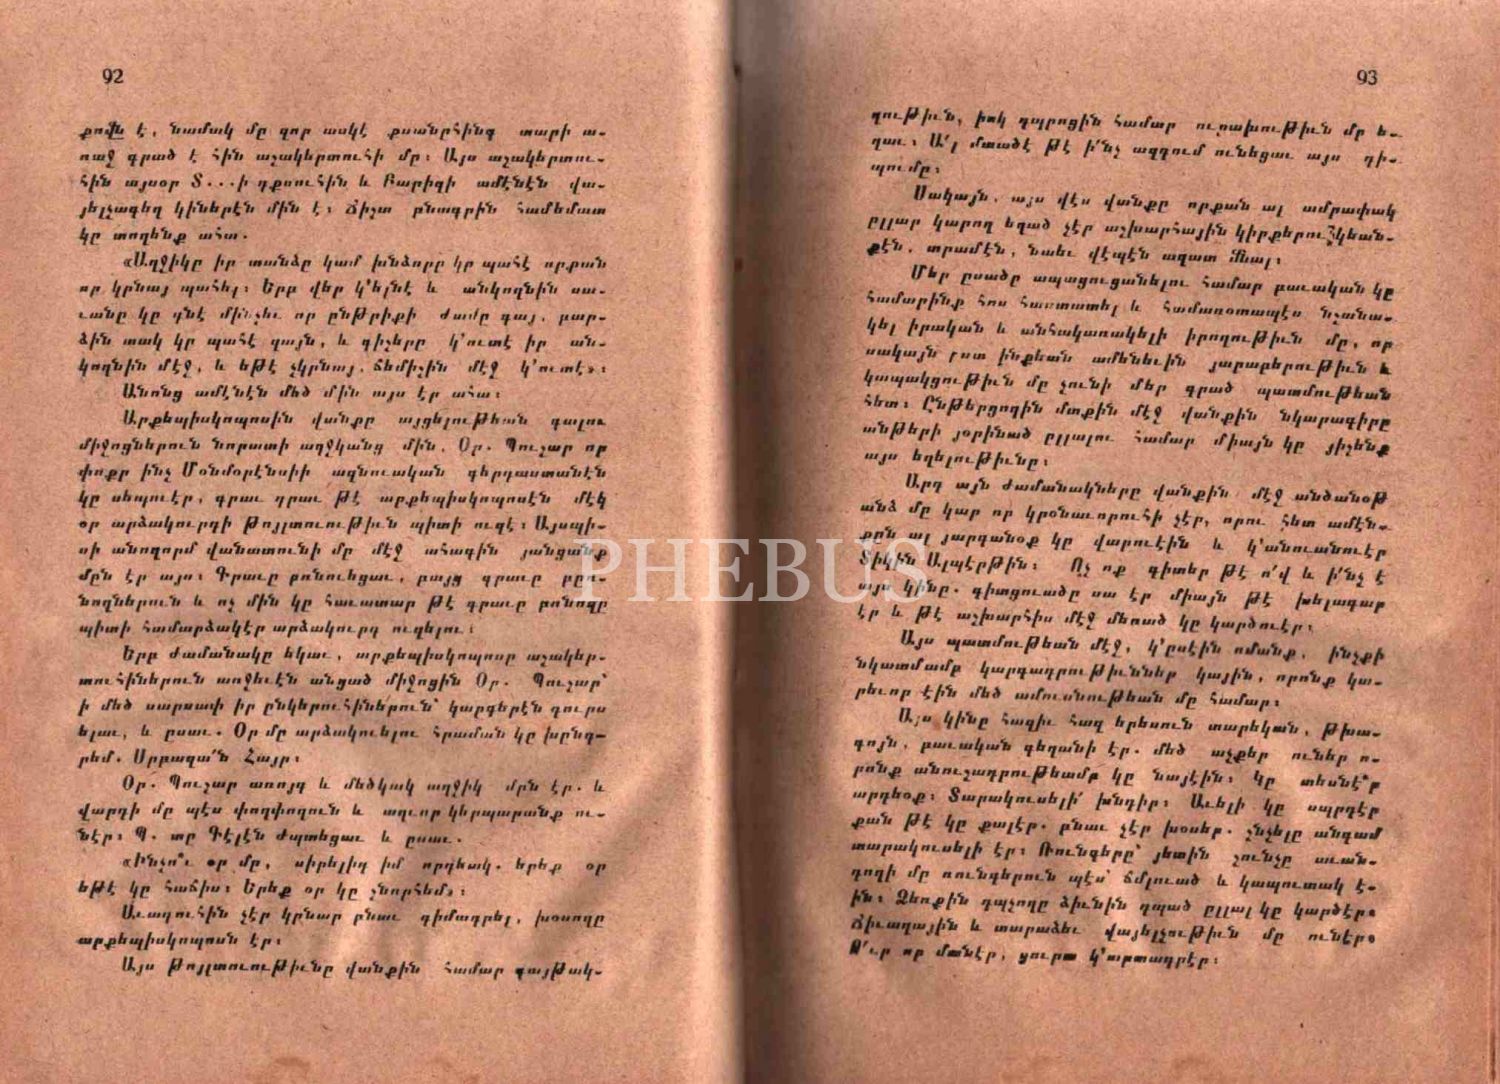 92
քովն է, նամակ մը զոր ասկէ քսանըհինգ տարի ա-
ռաջ գրած է հին աշակերտուհի մը։ Այս աշակերտու-
հին այսօր Տ...ի դքսուհին և Բարիզի ամէնէն վա-
յելչագեղ կիներէն մին է։ Ճիշտ բնագրին համեմատ
կը տողենք ահա.
«Աղջիկը իր տանձը կամ խնձորը կը պահէ որքան
որ կրնայ պահել։ Երբ վեր կ'ելնէ և անկողնին սա-
ւանը կը դնէ մինչեւ որ ընթրիքի ժամը գայ, բար-
ձին տակ կը պահէ զայն, և գիշերը կ'ուտէ իր ան-
կողնին մէջ, և եթէ չկրնայ, ճեմիշին մէջ կ'ուտէ»։
Անոնց ամէնէն մեծ մին այս էր ահա։
Արքեպիսկոպոսին վանքը այցելութեան գալու
միջոցներուն նորատի աղջկանց մին, Օր. Պուշար որ
փոքր ինչ Մօնմօրէնսիի ազնուական գերդաստանէն
կը սեպուէր, գրաւ դրաւ թէ արքեպիսկոպոսէն մէկ
օր արձակուրդի թոյլտուութիւն պիտի ուզէ։ Այսպի-
սի անողորմ վանատունի մը մէջ ահագին յանցանք
մըն էր այս։ Գրաւը բռնուեցաւ, բայց գրաւը բըռ-
նողներուն և ոչ մին կը հաւատար թէ գրաւը բռնողը
պիտի համարձակէր արձակուրդ ուզելու։
Երբ ժամանակը եկաւ, արքեպիսկոպոսը աշակեր-
տուհիներուն առջեւէն անցած միջոցին Օր. Պուշար՝
ի մեծ սարսափ իր ընկերուհիներուն՝ կարգերէն դուրս
ելաւ, և ըսաւ. Օր մը արձակուելու հրաման կը խընդ-
րեմ, Սրբազա՛ն Հայր։
Օր. Պուշար առոյգ և մեծկակ աղջիկ մըն էր. և
վարդի մը պէս փողփողուն և աղւոր կերպարանք ու-
նէր։ Պ. տը Գէլէն ժպտեցաւ և ըսաւ.
«Ինչո՞ւ օր մը, սիրելիդ իմ որդեակ. երեք օր
եթէ կը հաճիս։ Երեք օր կը շնորհեմ»։
Աւագուհին չէր կրնար բնաւ դիմադրել, խօսողը
արքեպիսկոպոսն էր։
Այս թոյլտուութիւնը վանքին համար գայթակ-
93
ղութիւն, իսկ դպրոցին համար ուրախութիւն մը ե-
ղաւ։ Ա՛լ մտածէ թէ ի՛նչ ազդում ունեցաւ այս դի-
պումը։
Սակայն, այս վէս վանքը որքան ալ ամրափակ
ըլլար կարող եղած չէր աշխարհային կիրքերու, կեան-
քէն, տրամէն, նաեւ վէպէն ազատ մնալ։
Մեր ըսածը ապացուցանելու համար բաւական կը
համարինք հոս հաստատել և համառօտապէս նշանա-
կել իրական և անհակառակելի իրողութիւն մը, որ
սակայն ըստ ինքեան ամենեւին յարաբերութիւն և
կապակցութիւն մը չունի մեր գրած պատմութեան
հետ։ Ընթերցողին մտքին մէջ վանքին նկարագիրը
անթերի յօրինած ըլլալու համար միայն կը յիշենք
այս եղելութիւնը։
Արդ այն ժամանակները վանքին մէջ անծանօթ
անձ մը կար որ կրօնաւորուհի չէր, որու հետ ամէն-
քըն ալ յարգանօք կը վարուէին և կ'անուանուէր
Տիկին Ալպէրթին։ Ոչ ոք գիտեր թէ ո՛վ և ի՛նչ է
այս կինը. գիտցուածը սա էր միայն թէ խելագար
էր և թէ աշխարհիս մէջ մեռած կը կարծուէր։
Այս պատմութեան մէջ, կ'ըսէին ոմանք, ինչքի
նկատմամբ կարգադրութիւններ կային, որոնք կա-
րեւոր էին մեծ ամուսնութեան մը համար։
Այս կինը հազիւ հազ երեսուն տարեկան, թխա-
գոյն, բաւական գեղանի էր. մեծ աչքեր ունէր ո-
րոնք անուշադրութեամբ կը նայէին։ կը տեսնէ՞ր
արդեօք։ Տարակուսելի՛ խնդիր։ Աւելի կը սպրդէր
քան թէ կը քալէր. բնաւ չէր խօսեր. շնչելը անգամ
տարակուսելի էր։ Ռունգերը՝ յետին շունչը աւան-
դողի մը ռունգերուն պէս՝ ճմլուած և կապուտակ է-
ին։ Ձեռքին դպչողը ձիւնին դպած ըլլալ կը կարծէր։
Ճիւաղային և տարաձեւ վայելչութիւն մը ունէր։
Ո՛ւր որ մտնէր, ցուրտ կ'արտադրէր։
PHEBUS